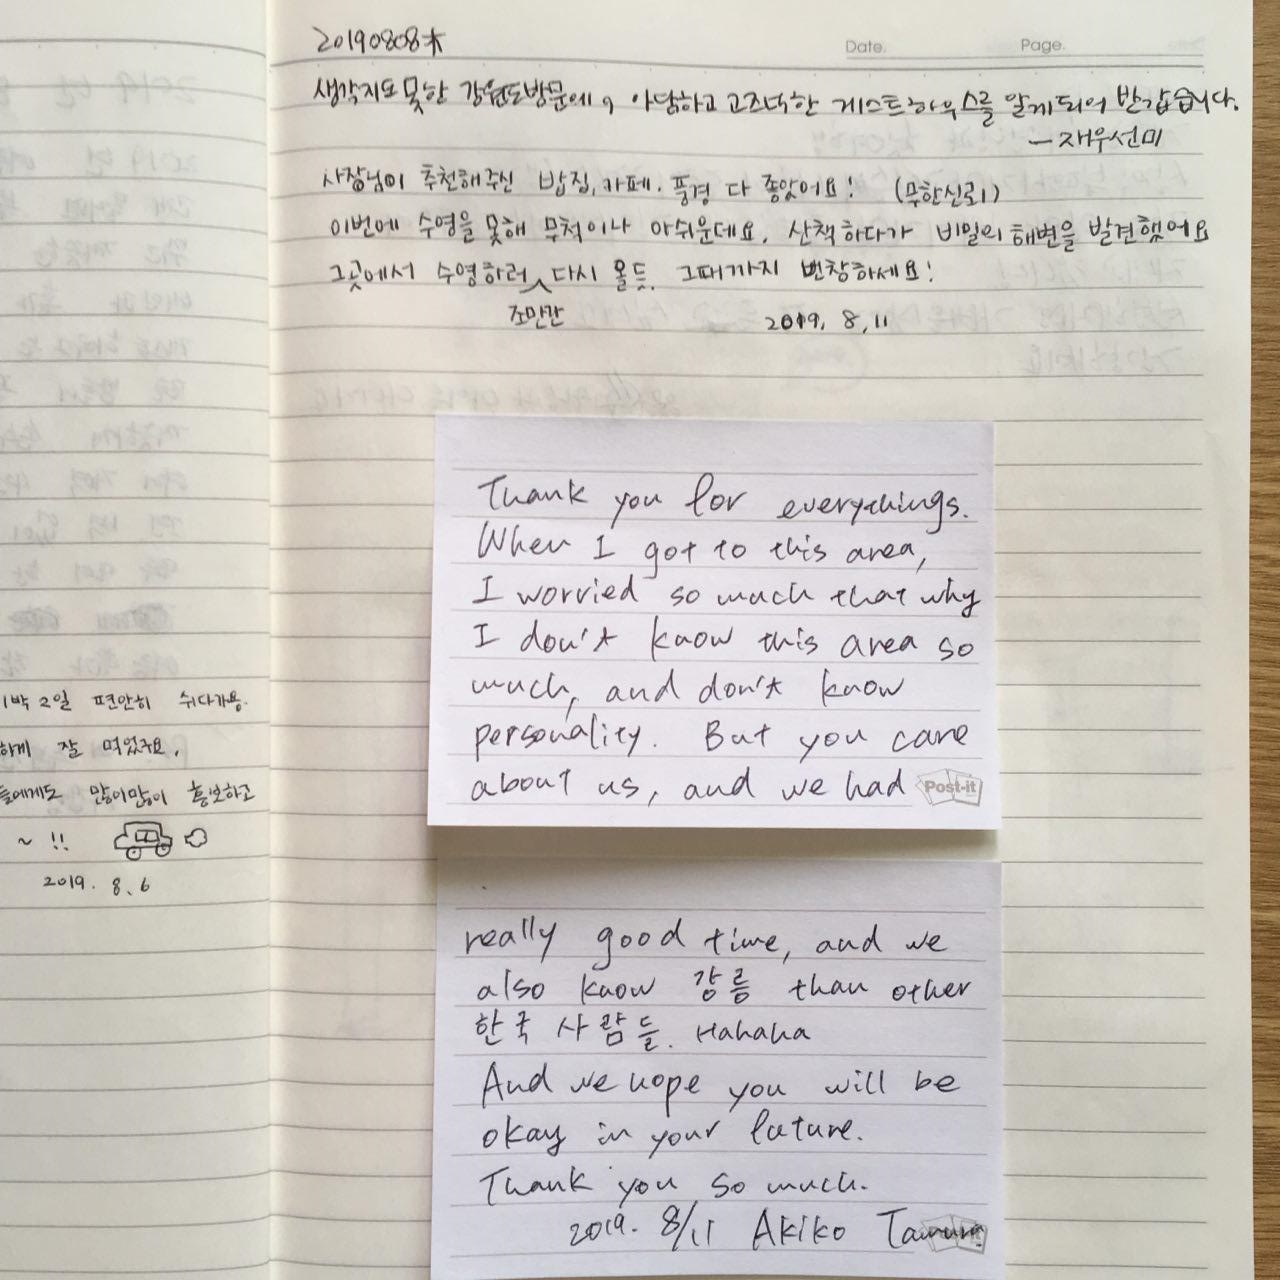 20190808木
Date.
Page.
생각지도 못한 강원도방문에, 아담하고 고즈넉한 게스트하우스를 알게되어 반갑습니다.
- 재우선미
사장님이 추천해주신 밥집, 카페, 풍경 다 좋았어요! (무한신뢰)
이번에 수영을 못해 무척이나 아쉬운데요, 산책하다가 비밀의 해변을 발견했어요
그곳에서 수영하러 다시 올듯, 그때까지 번창하세요!
조만간
2019. 8, 11
1박 2일 편안히 쉬다가용.
하게 잘 먹었구요,
들에게도 많이많이 홍보하고
~ !!
2019. 8. 6
Thank you for everythings.
When I got to this area,
I worried so much that why
I don't know this area so
much, and don't know
personality. But you care
about us, and we had
Post-it
really good time, and we
also know 강릉 than other
한국 사람들. Hahaha
And we hope you will be
okay in your future.
Thank you so much.
2019. 8/11 Akiko
Post-it